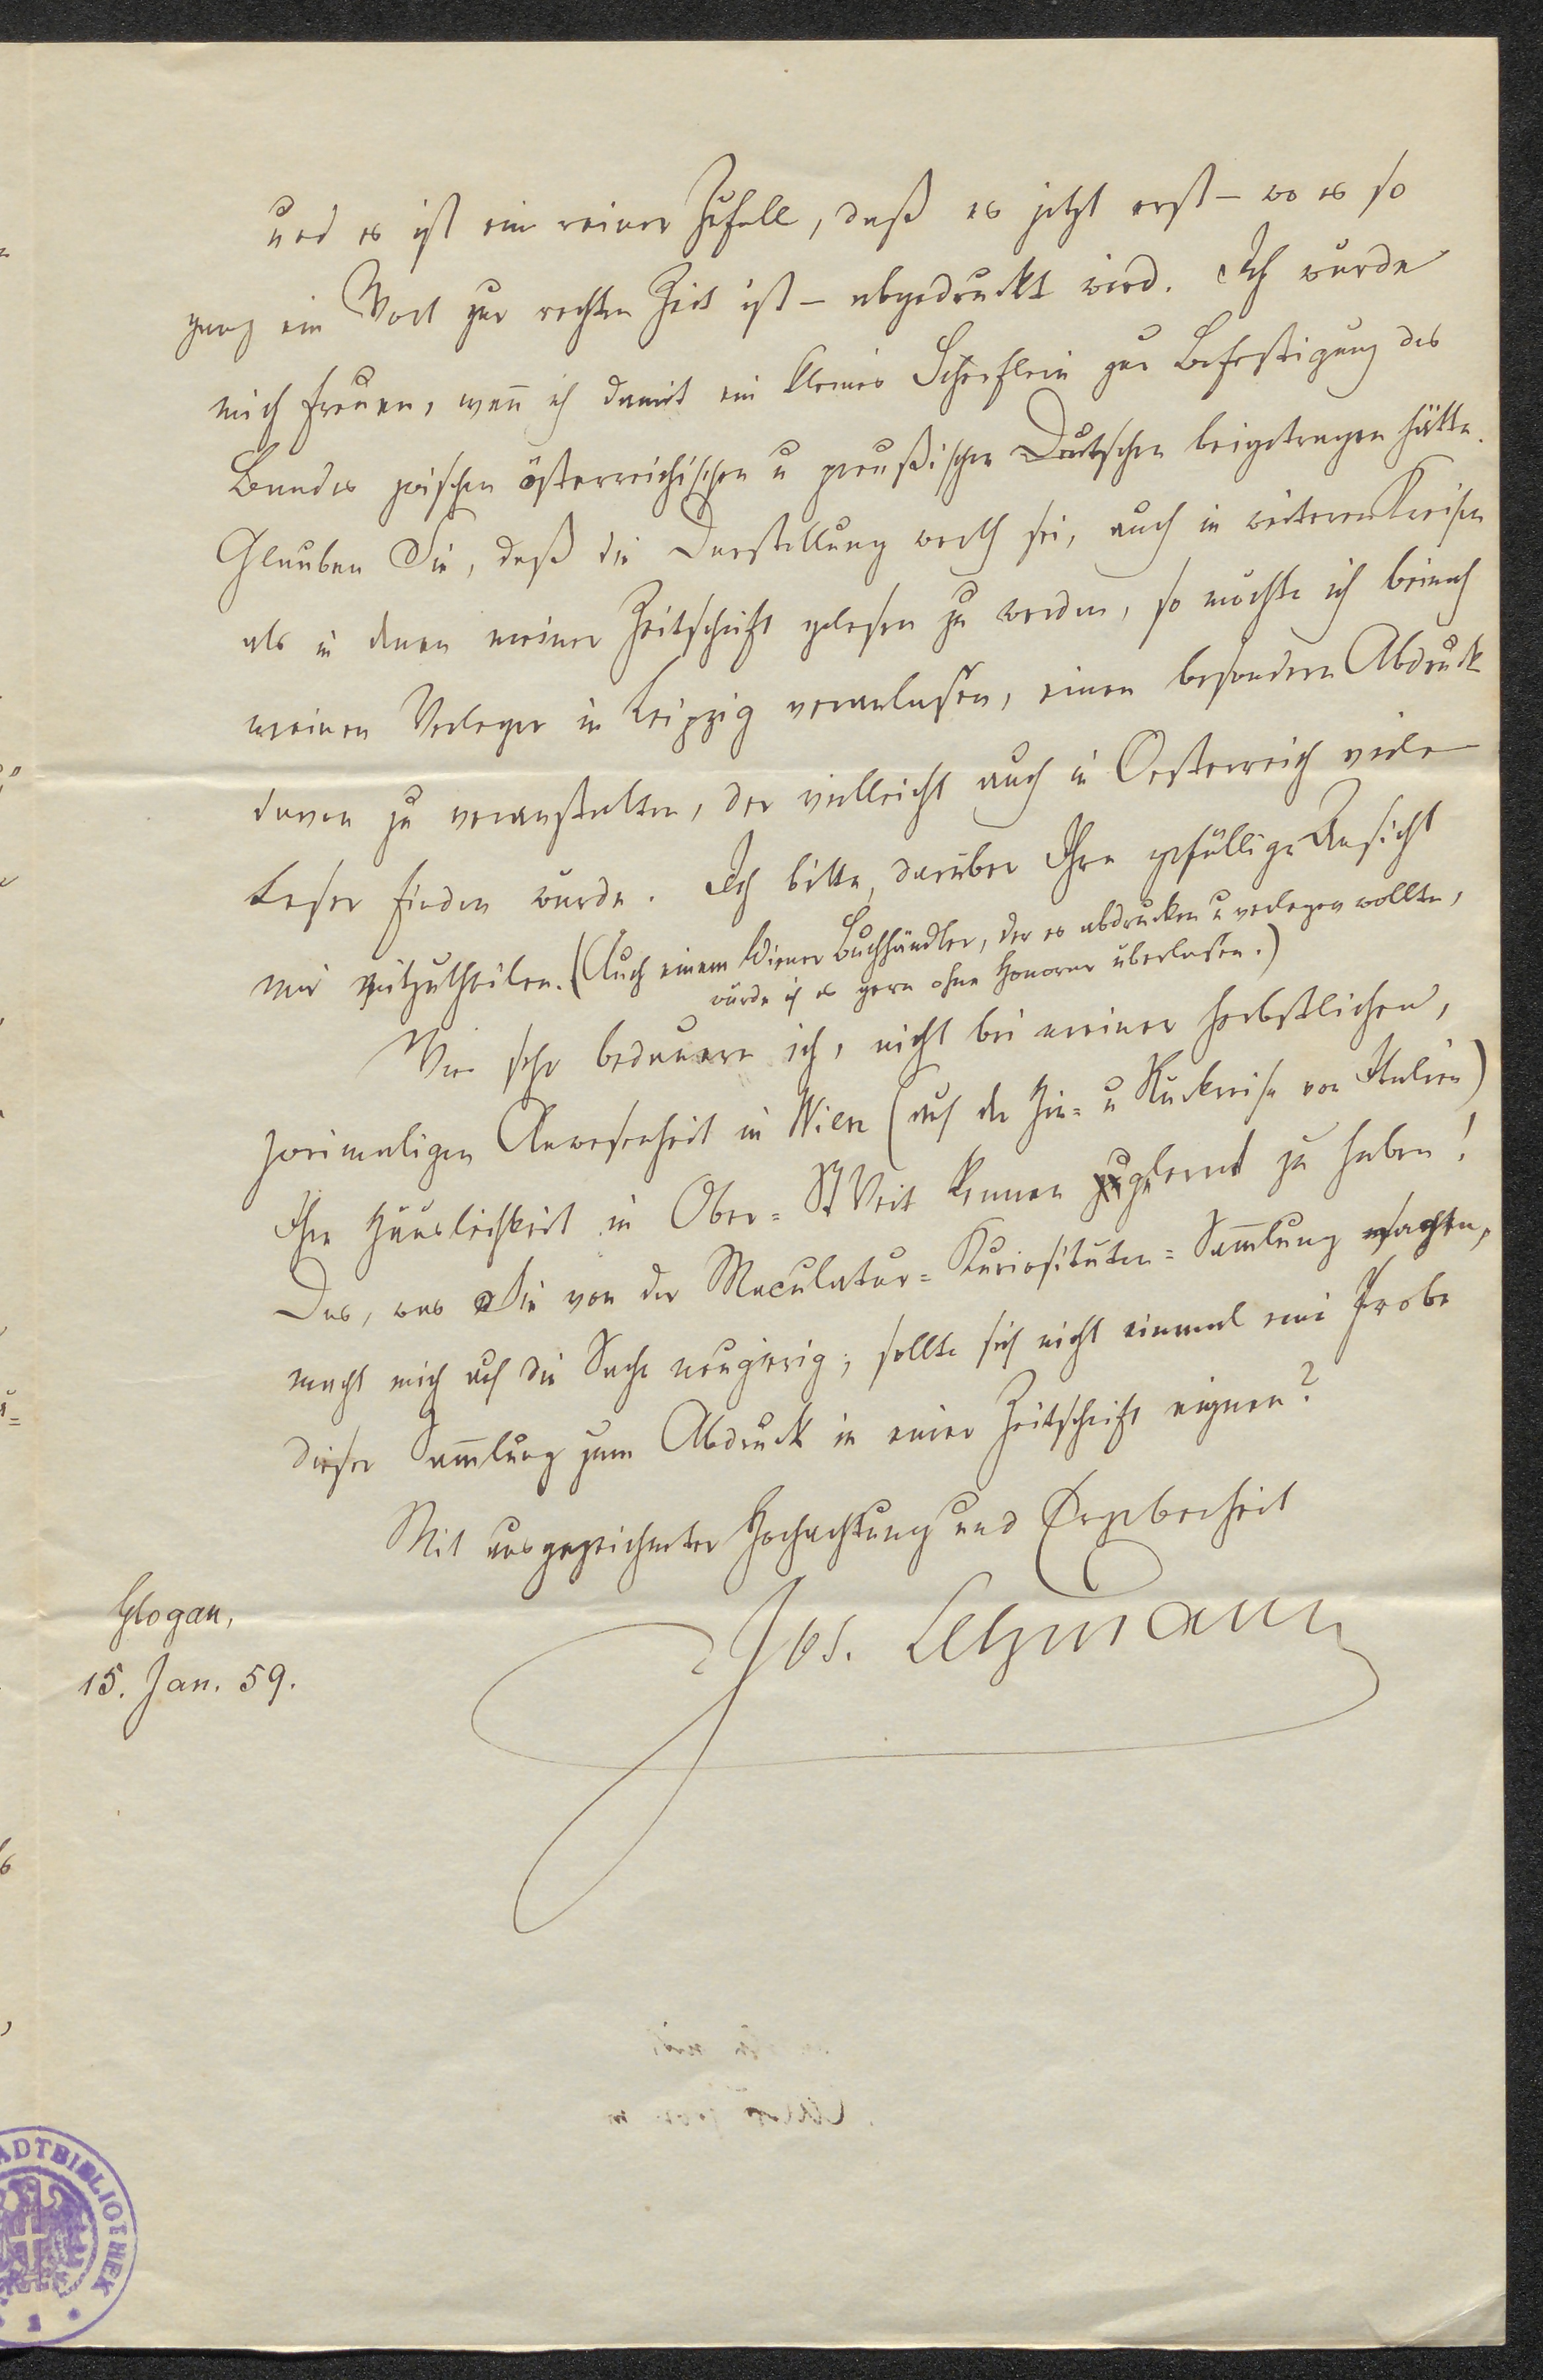 und es ist ein reiner Zufall, daß es jetzt erst – wo es so
ganz ein Wort zur rechten Zeit ist – abgedruckt wird. Ich würde
mich freuen, wen̄ ich damit ein kleines Scherflein zur Befestigung des
Bundes zwischen österreichischen u preußischen Deutschen beigetragen hätte.
Glauben Sie, daß die Darstellung werth sei, auch in weiteren Kreisen
als in denen meiner Zeitschrift gelesen zu werden, so möchte ich beinah
meinen Verleger in Leipzig veranlassen, einen besondern Abdruck
davon zu veranstalten, der vielleicht auch in Oesterreich viele
Leser finden würde. Ich bitte, darüber Ihre gefällige Ansicht
mir mitzutheilen. (Auch einem Wiener Buchhändler, der es abdrucken u verlegen wollte,
würde ich es gern ohne Honorar überlassen.)
Wie sehr bedauere ich, nicht bei meiner herbstlichen,
zweimaligen Anwesenheit in Wien (auf der Hin= u Rückreise von Italien)
Ihre Häuslichkeit in Ober=St Veit kennen gelernt zu haben!
Das, was Sie von der Maculatur=Kuriositäten=Sam̄lung sagten,
macht mich auf die Sache neugierig; sollte sich nicht einmal eine Probe
dieser Sam̄lung zum Abdruck in einer Zeitschrift eignen?
Mit ausgezeichneter Hochachtung und Ergebenheit
Jos. Lehmann
Glogau,
15. Jan. 59.
ADTBIBLIOTHEK